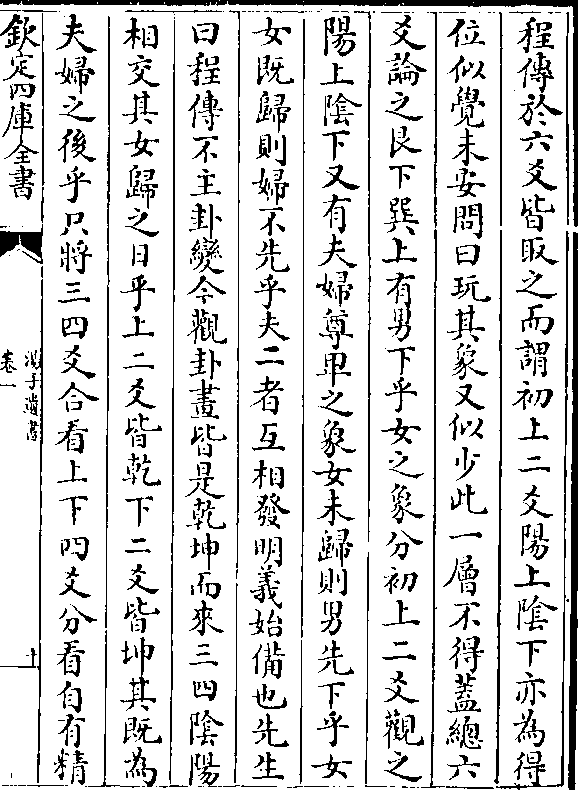 程傳於六爻皆取之而謂初上二爻陽上陰下亦為得
位似覺未安問曰玩其象又似少此一層不得蓋總六
爻論之艮下巽上有男下乎女之象分初上二爻觀之
陽上陰下又有夫婦尊卑之象女未歸則男先下乎女
女既歸則婦不先乎夫二者互相發明義始備也先生
曰程傳不主卦變今觀卦畫皆是乾坤而來三四陰陽
相交其女歸之日乎上二爻皆乾下二爻皆坤其既為
夫婦之後乎只將三四爻合看上下四爻分看自有精
欽定四庫全書
卷一
溪子遺書